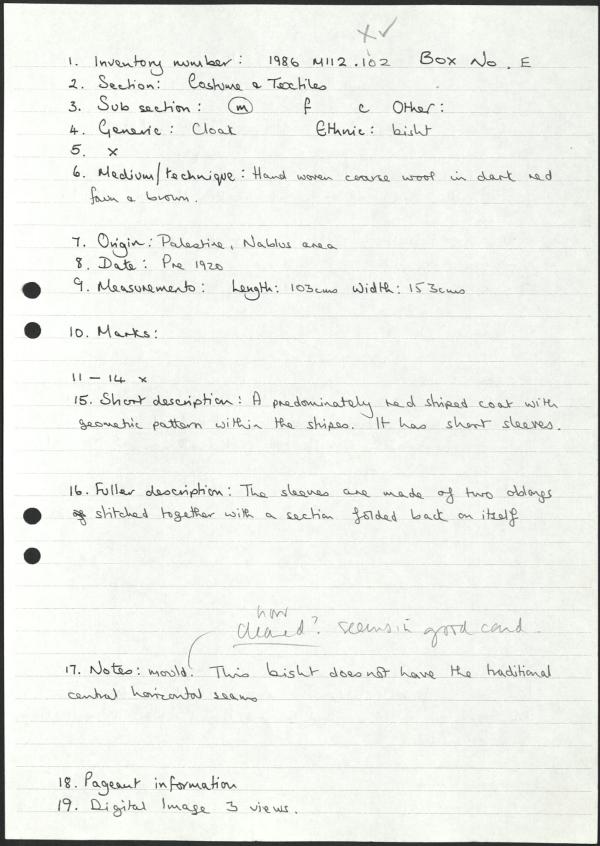 x ✓
1. Inventory number: 1986 M112.102 Box No. E
2. Section: Costume & Textiles
3. Sub section: m f c Other:
4. Generic: Cloak Ethnic: bisht
5. x
6. Medium/technique: Hand woven coarse wool in dark red
fawn & brown.
7. Origin: Palestine, Nablus area
8. Date: Pre 1920
9. Measurements: Length: 103cms Width: 153cms
10. Marks:
11 – 14 x
15. Short description: A predominately red striped coat with
geometric pattern within the stripes. It has short sleeves.
16. Fuller description: The sleeves are made of two oblongs
of stitched together with a section folded back on itself
now
cleaned? seems in good cond.
17. Notes: mould. This bisht does not have the traditional
central horizontal seams
18. Pageant information
19. Digital Image 3 views.